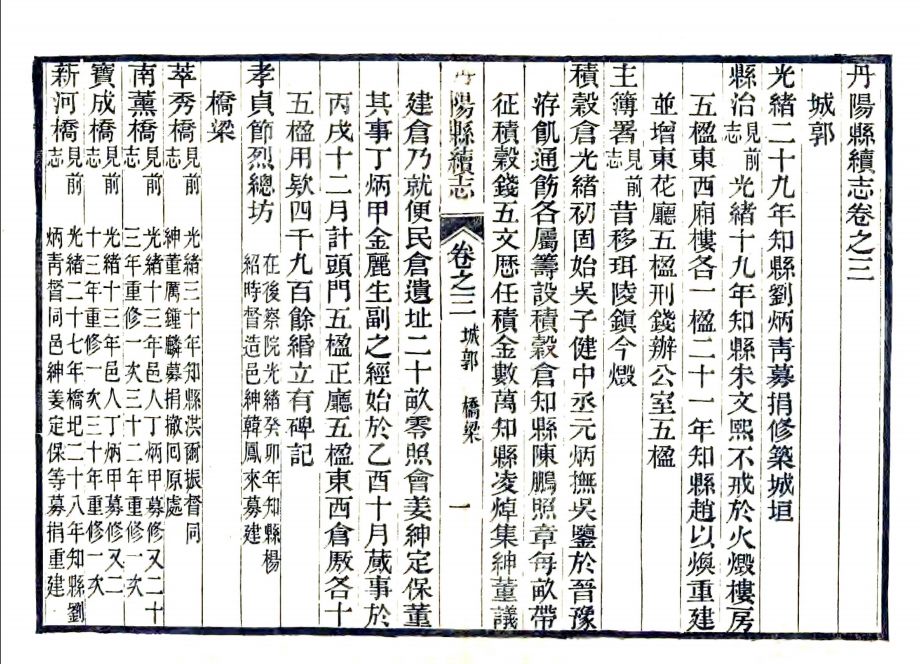 丹陽縣續志卷之三
城郭
光緒二十九年知縣劉炳青募捐修築城垣
縣治見前志光緒十九年知縣朱文熙不戒於火燬樓房
五楹東西廂樓各一楹二十一年知縣趙以煥重建
並增東花廳五楹刑錢辦公室五楹
主簿署見前志昔移珥陵鎮今燬
積穀倉光緒初固始吳子健中丞元炳撫吳鑒於晉豫
洊飢通飭各屬籌設積穀倉知縣陳鵬照章每畝帶
征積穀錢五文歷任積金數萬知縣凌焯集紳董議
丹陽縣續志 卷之三 城郭 橋梁 一
建倉乃就便民倉遺址二十畝零照會姜紳定保董
其事丁炳甲金麗生副之經始於乙酉十月蕆事於
丙戌十二月計頭門五楹正廳五楹東西倉厫各十
五楹用欵四千九百餘緡立有碑記
孝貞節烈總坊 在後察院光緒癸卯年知縣楊紹時督造邑紳韓鳳來募建
橋梁
萃秀橋見前志 光緒三十年知縣洪爾振督同紳董厲鍾麟募捐撤囘原處
南薰橋見前志 光緒十三年邑人丁炳甲募修又二十三年重修一次三十二年重修一次
寶成橋見前志 光緒十三年邑人丁炳甲募修又二十三年重修一次三十年重修一次
新河橋見前志 光緒二十七年橋圯二十八年知縣劉炳青督同邑紳姜定保等募捐重建